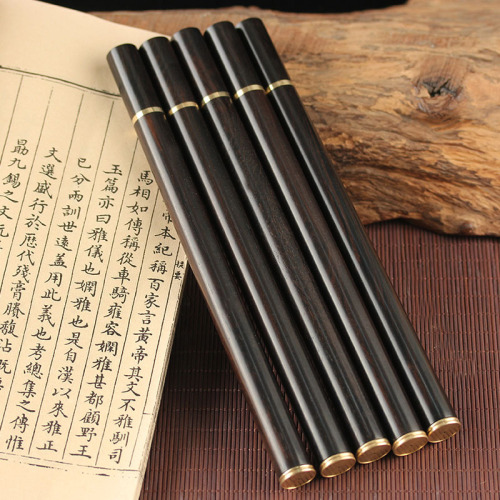 帝本紀稱百家言黃帝其文不雅馴司
馬相如傳稱從車騎雍容嫺雅甚都顧野王
玉篇亦曰雅儀也嫺雅也是自漢以來雅正
已分兩訓世遠蓋用此義也考總集之傳惟
文選盛行於歷代殘膏賸馥沾溉
勗九錫之文阮